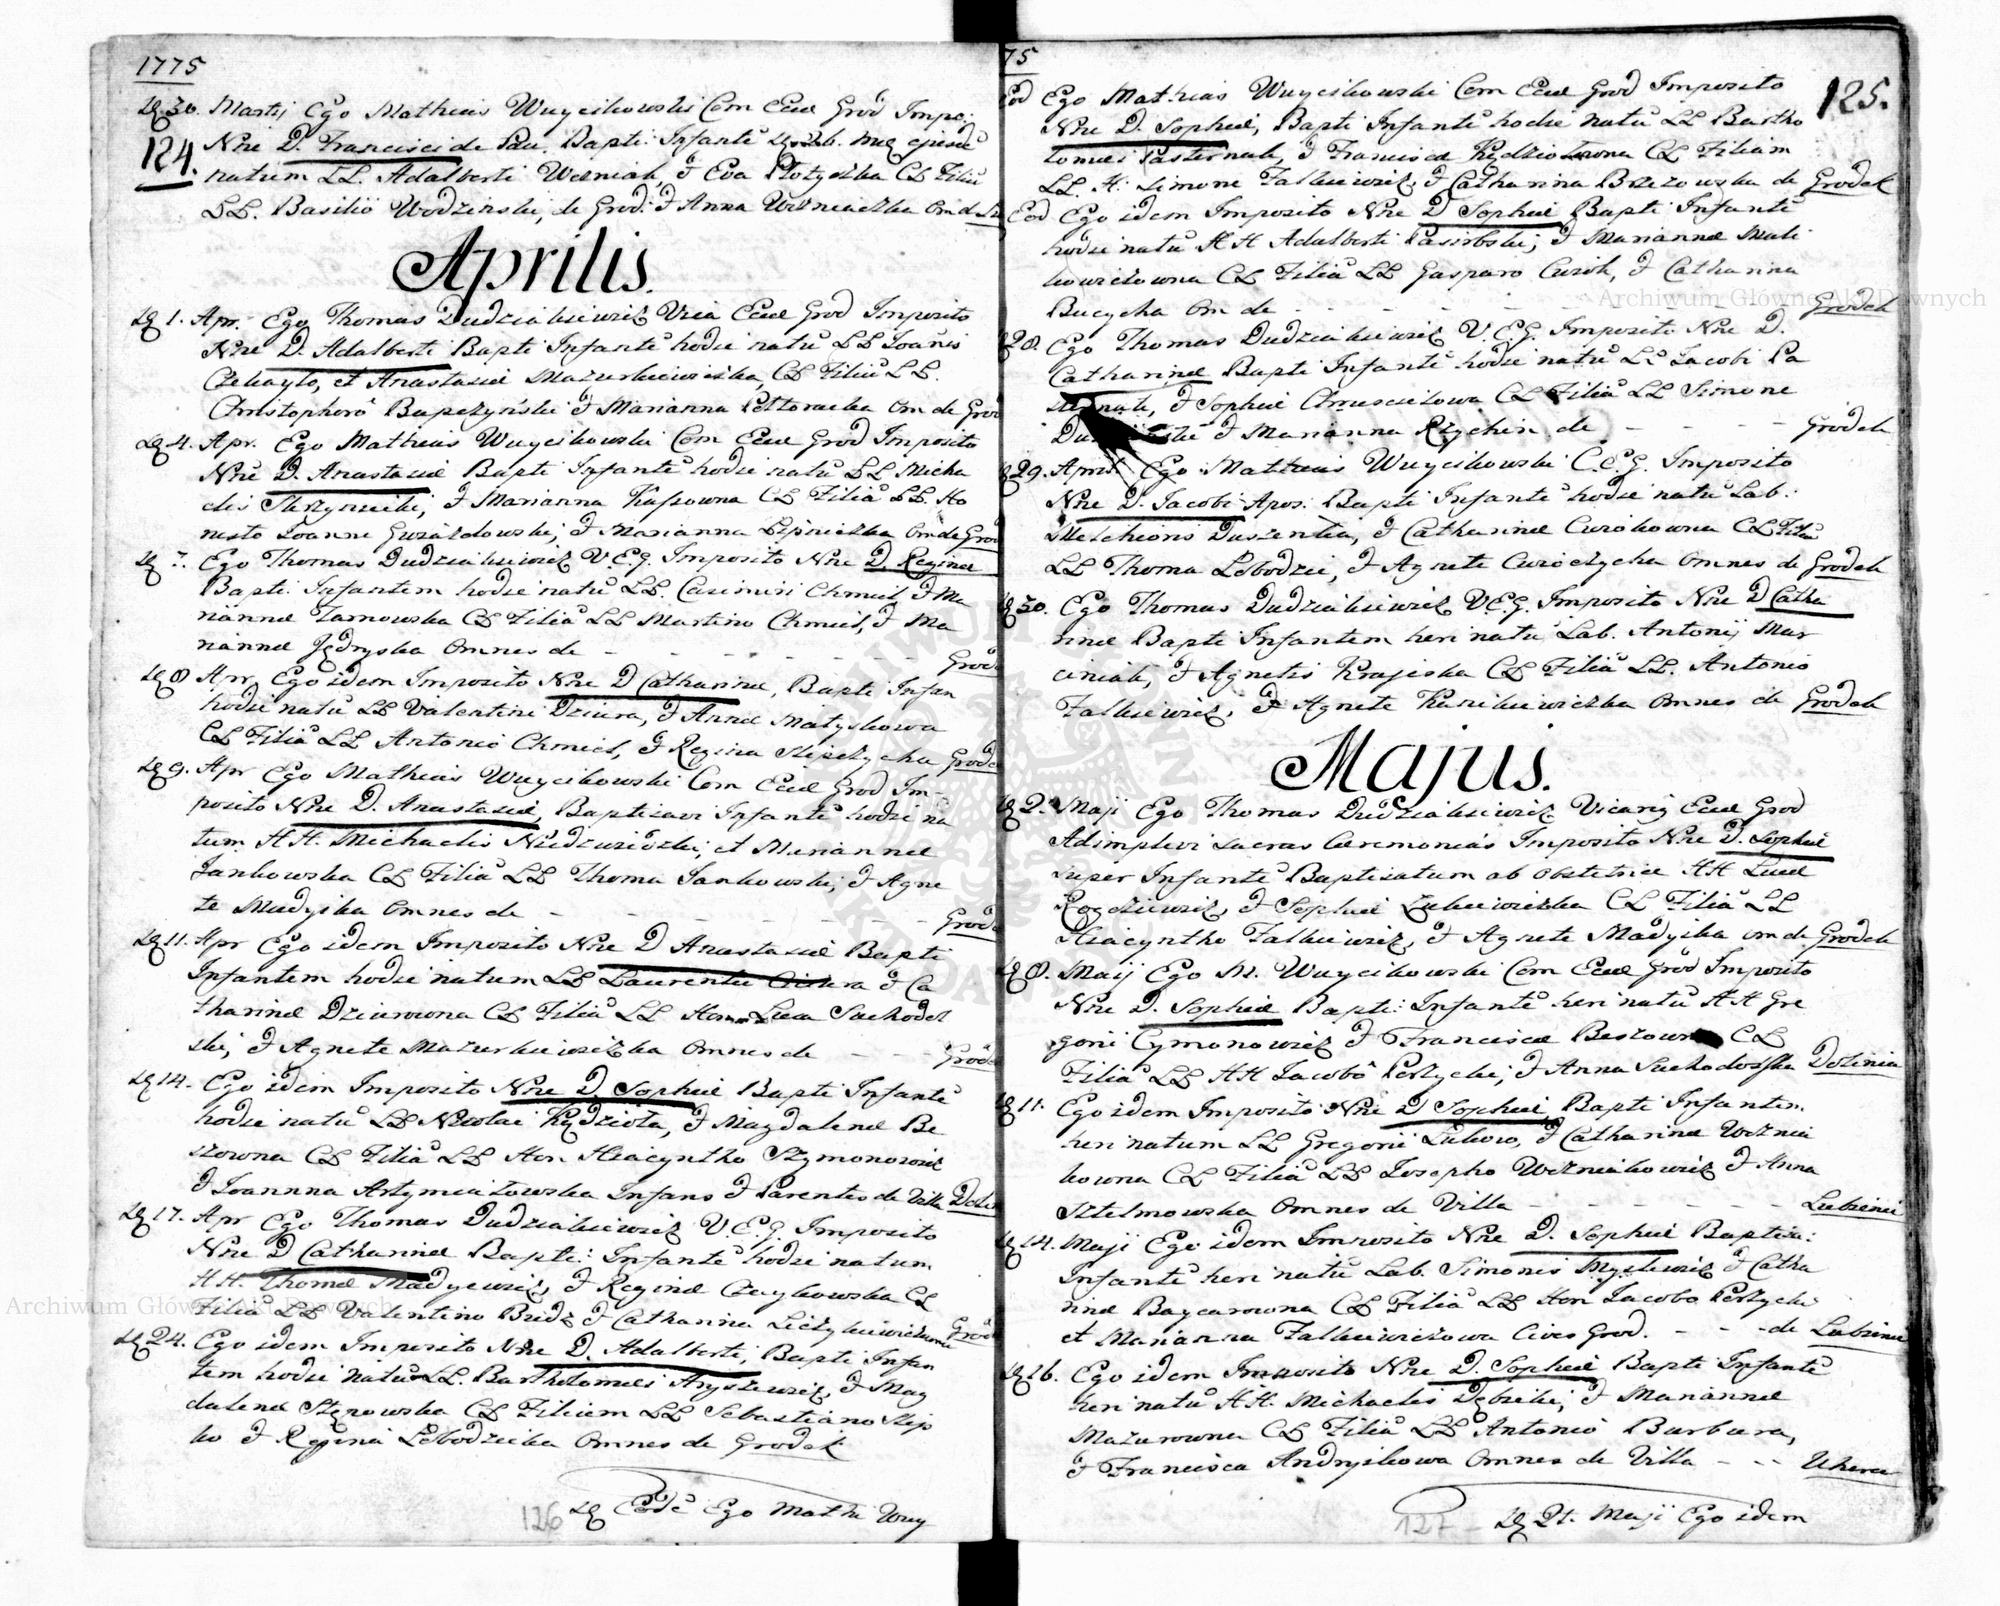 1775
Die 30. Martij Ego Mathias Wuycikowski Com Eccl Grod Impo:
124. Nne D. Francisci de Pau, Bapti: Infantē
natum LL. Adalberti Wozniak, & Eva Plotycka CL Filiū
LL. Basilio Wodzinski, de Grod: & Anna Wozniaczka Om d
Aprilis.
Die 1. Apr. Ego Thomas Dudzialkiewicz Vica Eccl Grod Imposito
Nne D. Adalberti Bapti Infantē hodie natū LL Joānis
Czekaylo, et Anastasiae Mazurkiewiczka, CL Filiū LL.
Christophorō Bupczyński & Marianna Poltoracka Om de Grod
Die 4. Apr. Ego Mathias Wuycikowski Com Eccl Grod Imposito
Nne D. Anastasiae Bapti Infantē hodie natū LL Micha
elis Skrzynecki, & Marianna Kussowna CL Filiā LL. Ho
nesto Joanne Gwiazdowski, & Marianna Lipniczka Om de Grod
Die 7. Ego Thomas Dudzialkiewicz V.E.G. Imposito Nne D. Reginae
Bapti: Infantem hodie natū LL. Casimiri Chmiel, & Ma
riannae Tarnowska CL Filiā LL Martino Chmiel, & Ma
riannae Jędryska Omnes de - - - - - - Grod
Die 8 Apr Ego idem Imposito Nne D Catharinae, Bapti Infan
hodie natū LL Valentini Dziura, & Annae Matyskowa
CL Filiā LL Antonio Chmiel, & Regina Slipczycha Grod
Die 9. Apr Ego Mathias Wuycikowski Com Eccl Grod Im-
posito Nne D. Anastasiae, Baptizavi Infantē hodie na
tum HH. Michaelis Niedzwiedzki, et Mariannae
Jankowska CL Filiā LL Thoma Jankowski, & Agne
te Madyska Omnes de - - - - - - Grod
Die 11. Apr Ego idem Imposito Nne D Anastasiae Bapti
Infantem hodie natum LL Laurentii & Ca
tharinae Dziurowna CL Filiā LL Hon Luca Suchodol
ski, & Agnete Mazurkiewiczka Omnes de - - - Grod
Die 14. Ego idem Imposito Nne D. Sophiae Bapti Infantē
hodie natū LL Nicolai Kędziola, & Magdalenae Be
szowna CL Filiā LL Hon Hiacyntho Szymonowicz
& Joannna Artymiatowska Infans & Parentes de Villa Dol
Die 17. Apr Ego Thomas Dudzialkiewicz V.E.G. Imposito
Nne D Catharinae Bapti: Infantē hodie natum
HH. Thomae Madyewicz, & Reginae Czaykowska CL
Filiā LL Valentino Bridz & Catharina Liczykiewiczowna Grod
Die 24. Ego idem Imposito Nne D. Adalberti, Bapti Infan
tem hodie natū LL. Bartholomaei Aryszewicz, & Mag
dalenae Stępowska CL Filium LL Sebastiano Slip
ko & Regina Lebodzicka Omnes de Grodek
126 Die Eodē Ego Mathi Wuy
75
Eod Ego Mathias Wuycikowski Com Eccl Grod Imposito 125.
Nne D. Sophiae, Bapti Infantē hodie natū LL Bartho
lomaei Pasternak, & Francisca Kędziolowna CL Filiam
LL. H: Simone Falkiewicz, & Catharina Brzezowska de Grodek
Eod Ego idem Imposito Nne D Sophiae Bapti Infantē
hodie natū HH Adalberti Pasirbski, & Mariannae Mali
kowiczowna CL Filiā LL Gasparo Curik, & Catharina
Bucycha Om de - - - - - - Grodek
28. Ego Thomas Dudzialkiewicz V.E.G. Imposito Nne D.
Catharinae Bapti Infantē hodie natū LL Jacobi Pa
sternak, & Sophiae Chrusciclowa CL Filiā LL Simone
& Marianna Rzychin de - - - - Grodek
29. April Ego Mathias Wuycikowski C.E.G. Imposito
Nne D. Jacobi Apos: Bapti Infantē hodie natū Lab:
Melchioris Duszenka, & Catharinae Curikowna CL Filiū
LL Thoma Lebodzie, & Agnete Curiczycha Omnes de Grodek
Die 30. Ego Thomas Dudzialkiewicz V.E.G. Imposito Nne D Catha
rinae Bapti Infantem heri natū Lab. Antonij Mar
ciniak, & Agnetis Krajiska CL Filiā LL. Antonio
Falkiewicz, & Agnete Kusikiewiczka Omnes de Grodek
Majus.
Die 2. Maji Ego Thomas Dudzialkiewicz Vicariꝰ Eccl Grod
Adimplevi sacras Ceremonias Imposito Nne D. Sophiae
super Infantē Baptisatum ab Obstetrice HH Lucae
Rogczewicz, & Sophiae Zukiewiczka CL Filiā LL
Hiacyntho Falkiewicz, & Agnete Madyska om de Grodek
Die 8. Maij Ego M. Wuycikowski Com Eccl Grod Imposito
Nne D. Sophiae Bapti: Infantē heri natū HH Gre
gorii Cymonowicz & Francisca CL
Filiā LL HH Jacobō Perzycki, & Anna Suchodolska Dolinia
Die 11. Ego idem Imposito Nne D Sophiae, Bapti Infantem
heri natum LL Gregorii Lukow, & Catharinae Woznia
kowna CL Filiā LL Josepho Wozniakowicz & Anna
Sztelmowska Omnes de Villa - - - - - Lubienie
Die 14. Maji Ego idem Imposito Nne D. Sophiae Baptiz:
Infantē heri natū Lab. Simonis Myslewicz & Catha
rinae Baycarowna CL Filiā LL Hon Jacobo Perzycki
et Marianna Falkiewiczowa Cives Grod. - - - de Lubienie
Die 16. Ego idem Imposito Nne D. Sophiae Bapti Infantē
heri natū HH. Michaelis Dębicki, & Mariannae
Mazurowna CL Filiā LL Antonio Burbura,
& Francisca Andryikowa Omnes de Villa - - - Uherce
127 Die 21. Maji Ego idem
Archiwum Główne Akt Dawnych
Archiwum Główne Akt Dawnych
ARCHIWUM GŁÓWNE AKT DAWNYCH